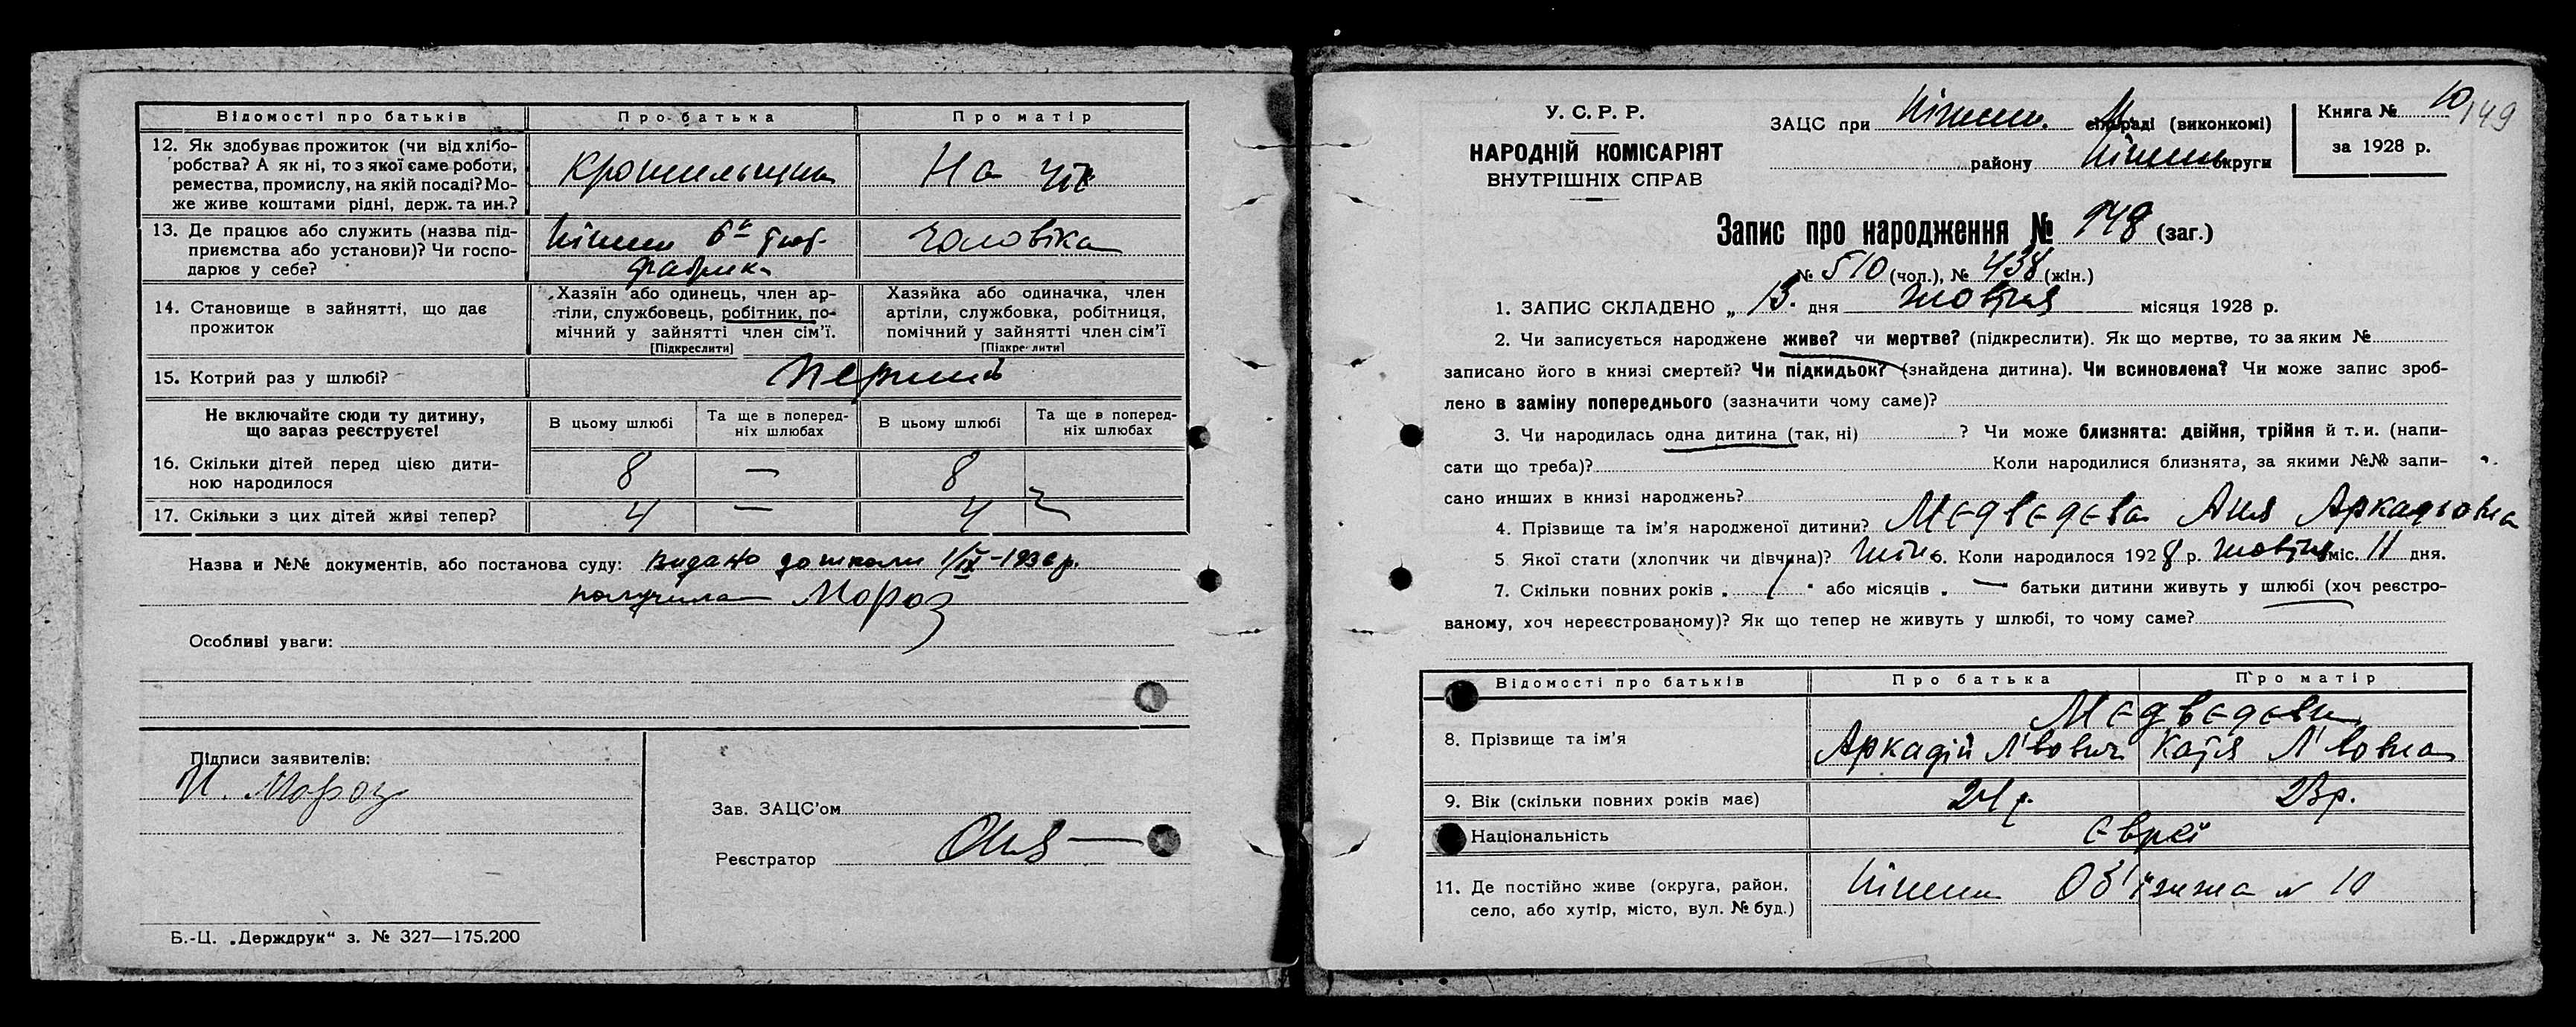 Відомості про батьків
Про батька
Про матір
12. Як здобуває прожиток (чи від хлібо-
робства? А як ні, то з якої саме роботи,
ремества, промислу, на якій посаді? Мо-
же живе коштами рідні, держ. та ин.?
Крошильщик
На
13. Де працює або служить (назва під-
приємства або установи)? Чи госпо-
дарює у себе?
Ніжин 6а Тют.
фабрика
чоловіка
14. Становище в зайнятті, що дає
прожиток
Хазяїн або одинець, член ар-
тіли, службовець, робітник, по-
мічний у зайнятті член сім'ї.
[Підкреслити]
Хазяйка або одиначка, член
артіли, службовка, робітниця,
помічний у зайнятті член сім'ї
[Підкреслити]
15. Котрий раз у шлюбі?
Перший
Не включайте сюди ту дитину,
що зараз реєструєте!
В цьому шлюбі
Та ще в поперед-
ніх шлюбах
В цьому шлюбі
Та ще в поперед-
ніх шлюбах
16. Скільки дітей перед цією дити-
ною народилося
8 — 8
17. Скільки з цих дітей живі тепер?
4 — 4
Назва и №№ документів, або постанова суду: видано до школи 1/IX-1936р.
получила Мороз
Особливі уваги:
Підписи заявителів:
И. Мороз
Зав. ЗАЦС'ом
Реєстратор
Б.-Ц. „Держдрук“ з. № 327—175.200
У. С. Р. Р.
НАРОДНІЙ КОМІСАРІЯТ
ВНУТРІШНІХ СПРАВ
ЗАЦС при Ніжин. М. раді (виконкомі)
району Ніжин округи
Книга № 10
149
за 1928 р.
Запис про народження № 948 (заг.)
№ 510 (чол.), № 438 (жін.)
1. ЗАПИС СКЛАДЕНО „ 13. дня жовтня місяця 1928 р.
2. Чи записується народжене живе? чи мертве? (підкреслити). Як що мертве, то за яким №
записано його в книзі смертей? Чи підкидьок? (знайдена дитина). Чи всиновлена? Чи може запис зроб-
лено в заміну попереднього (зазначити чому саме)?
3. Чи народилась одна дитина (так, ні) ? Чи може близнята: двійня, трійня й т. и. (напи-
сати що треба)? Коли народилися близнята, за якими №№ запи-
сано инших в книзі народжень?
4. Прізвище та ім'я народженої дитини? Мєдвєдєва Аня Аркадьовна
5. Якої стати (хлопчик чи дівчина)? жін. 6. Коли народилося 1928 р. жовтня міс. 11 дня.
7. Скільки повних років „ “ або місяців „ — “ батьки дитини живуть у шлюбі (хоч реєстро-
ваному, хоч нереєстрованому)? Як що тепер не живуть у шлюбі, то чому саме?
Відомості про батьків
Про батька
Про матір
8. Прізвище та ім'я
Мєдвєдєви
Аркадій Л'вович
Катя Л'вовна
9. Вік (скільки повних років має)
23р.
Національність
Євреї
11. Де постійно живе (округа, район,
село, або хутір, місто, вул. № буд.)
Ніжин Об'їзжа № 10